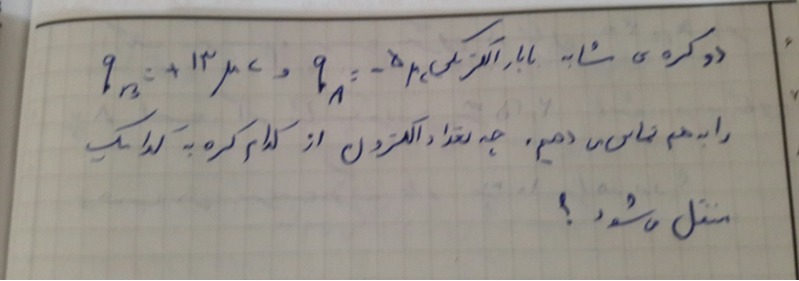 دو کره ی مشابه با بار الکتریکی q_A = -۵ μc و q_B = +۱۳ μc
را به هم تماس می دهیم، چه تعداد الکترون از کدام کره به کدام یک
منتقل می شود ؟